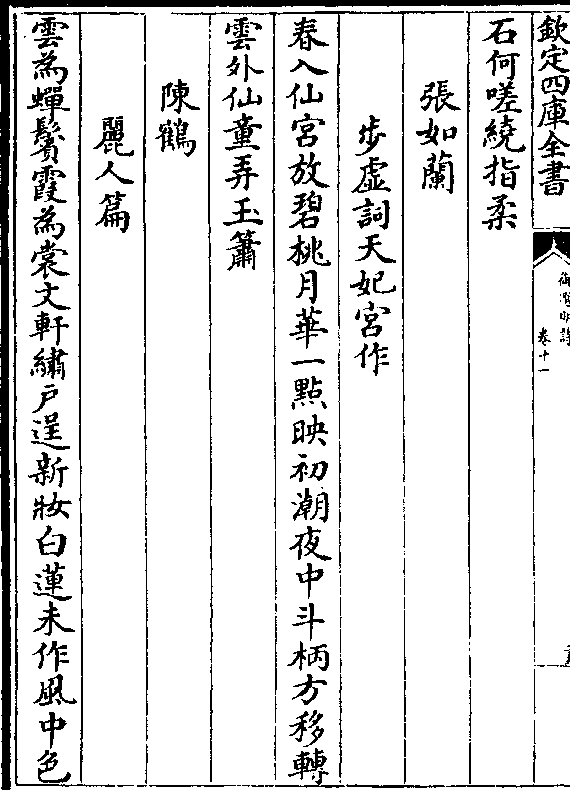 欽定四庫全書
御選明詩
卷十一
石何嗟繞指柔
張如蘭
步虛詞天妃宮作
春入仙宮放碧桃月華一點映初潮夜中斗柄方移轉
雲外仙童弄玉簫
陳鶴
麗人篇
雲為蟬鬢霞為裳文軒繡戶逞新妝白蓮未作風中色